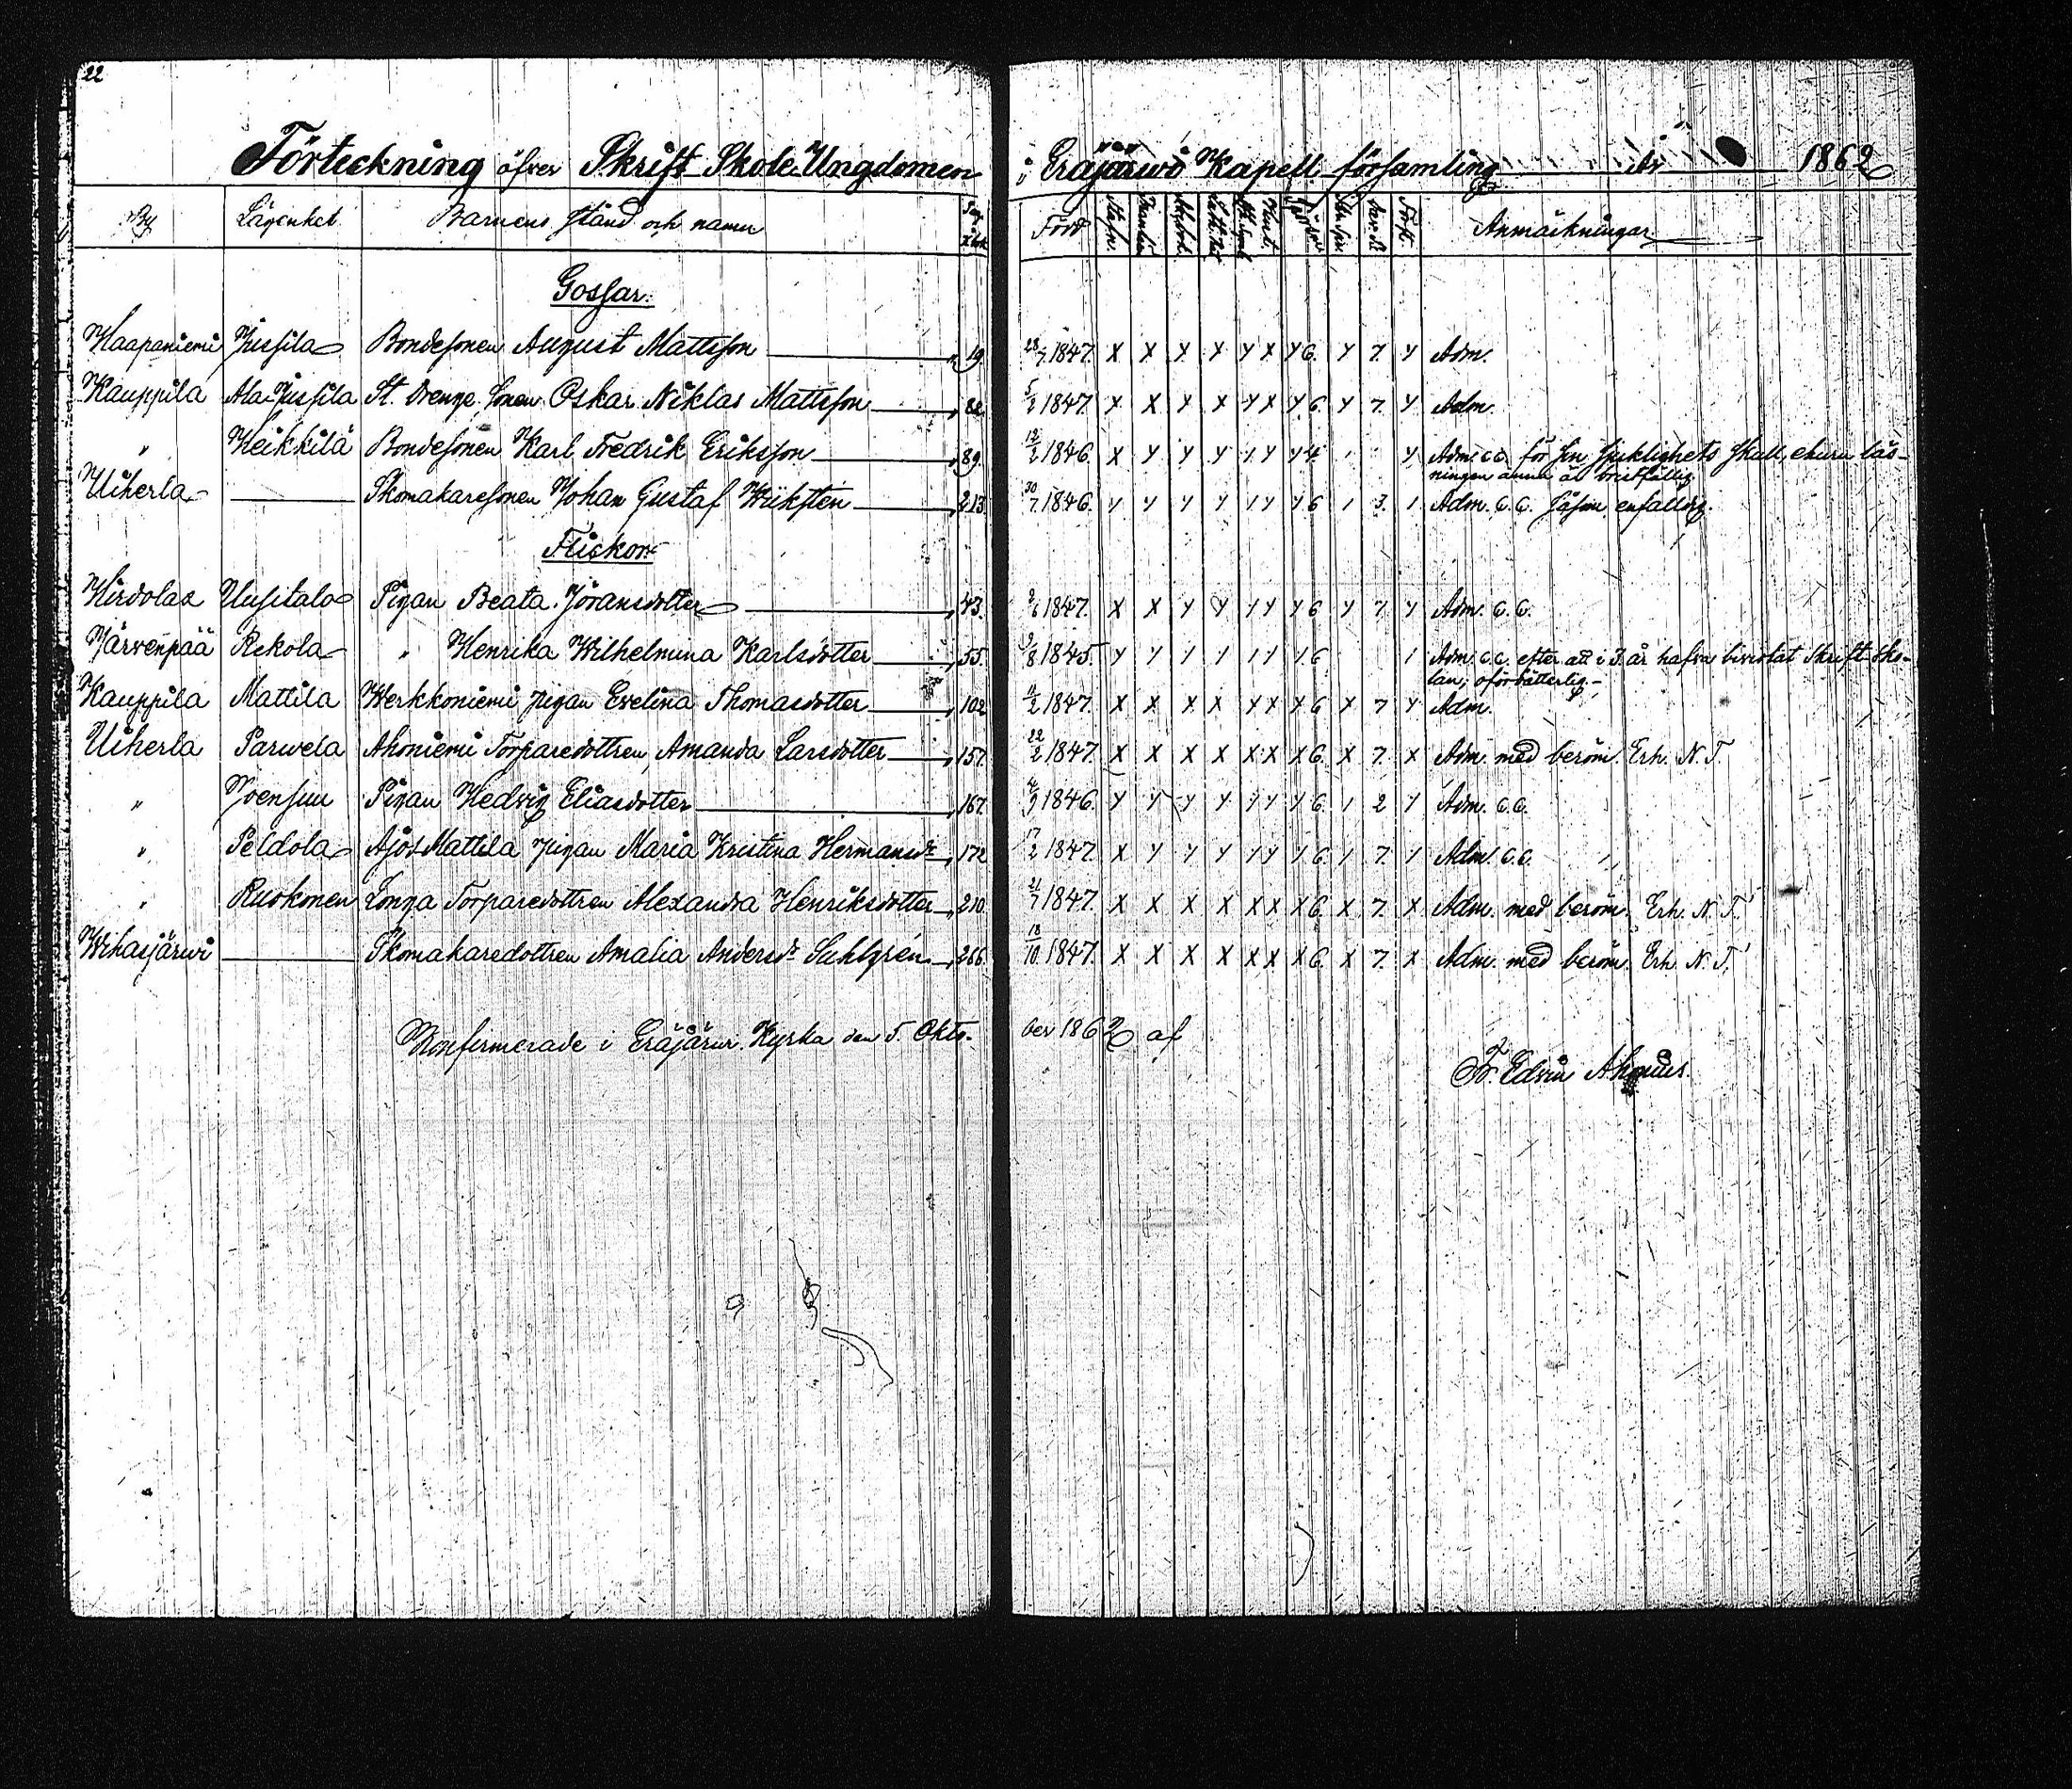 22
Förteckning öfver Skrift-Skole-Ungdomen i Eräjärwi Kapell församling år 1862
By Lägenhet Barnens stånd och namn Född Anmärkningar
Gossar.
Haapaniemi Jussila Bondesonen August Mattsson 19. 28/7 1847. X X X X Y X Y 6 Y 7. Y Adm.
Kauppila Ala-Jussila St. Drenge sonen Oskar Niklas Mattsson 82 5/2 1847. Y X Y X Y X Y 6 Y 7. Y Adm.
" Heikkilä Bondesonen Karl Fredrik Eriksson 89. 12/2 1846. X Y Y Y Y Y Y 4. Y Adm. c.c. för sin sjuklighets skull, ehuru läs-
ningen ännu är bristfällig.
Uiherla Skomakaresonen Johan Gustaf Wiksten 213. 30/7 1846. Y Y Y Y 1 Y Y 6 1 3. 1 Adm. c.c. Läsen. enfaldig.
Flickor.
Hirdola Uusitalo Pigan Beata Jöransdotter 43. 1847. X X Y Y Y Y Y 6 Y 7. Y Adm. c.c.
Järvenpää Rekola " Henrika Wilhelmina Karlsdotter 55. 9/8 1845. Y Y 1 1 1 1 1 6 1 Adm. c.c. efter att i 3 år hafva bivistat Skrift-sko-
lan; oförbätterlig.
Kauppila Mattila Werkkoniemi pigan Evelina Thomasdotter 102 1847. X X X X X X Y 6 X 7 Y Adm.
Uiherla Parwela Ahoniemi Torparedottren, Amanda Larsdotter 157. 22/2 1847. X X X X X X X 6. X 7. X Adm. med beröm. Erh. N. T.
" Joensuu Pigan Hedvig Eliasdotter 167. 1846. Y Y Y Y Y Y Y 6. 1 2 Y Adm. c.c.
" Peldola Ajos Mattila pigan Maria Kristina Hermansdr 172 17/2 1847. X Y Y Y 1 Y Y 6. 1 7. Y Adm. c.c.
" Ruokonen Longa Torparedottren Alexandra Henriksdotter 210. 21/7 1847. X X X X X X X 6. X 7. X Adm. med beröm. Erh. N. T.
Wihasjärwi Skomakaredottren Amalia Andersdr Sahlgrén 266. 18/10 1847. X X X X X X X 6. X 7. X Adm. med beröm. Erh. N. T.
Konfirmerade i Eräjärvi Kyrka den 5. Okto-ber 1862 af
Fr. Edvin Ahonius.